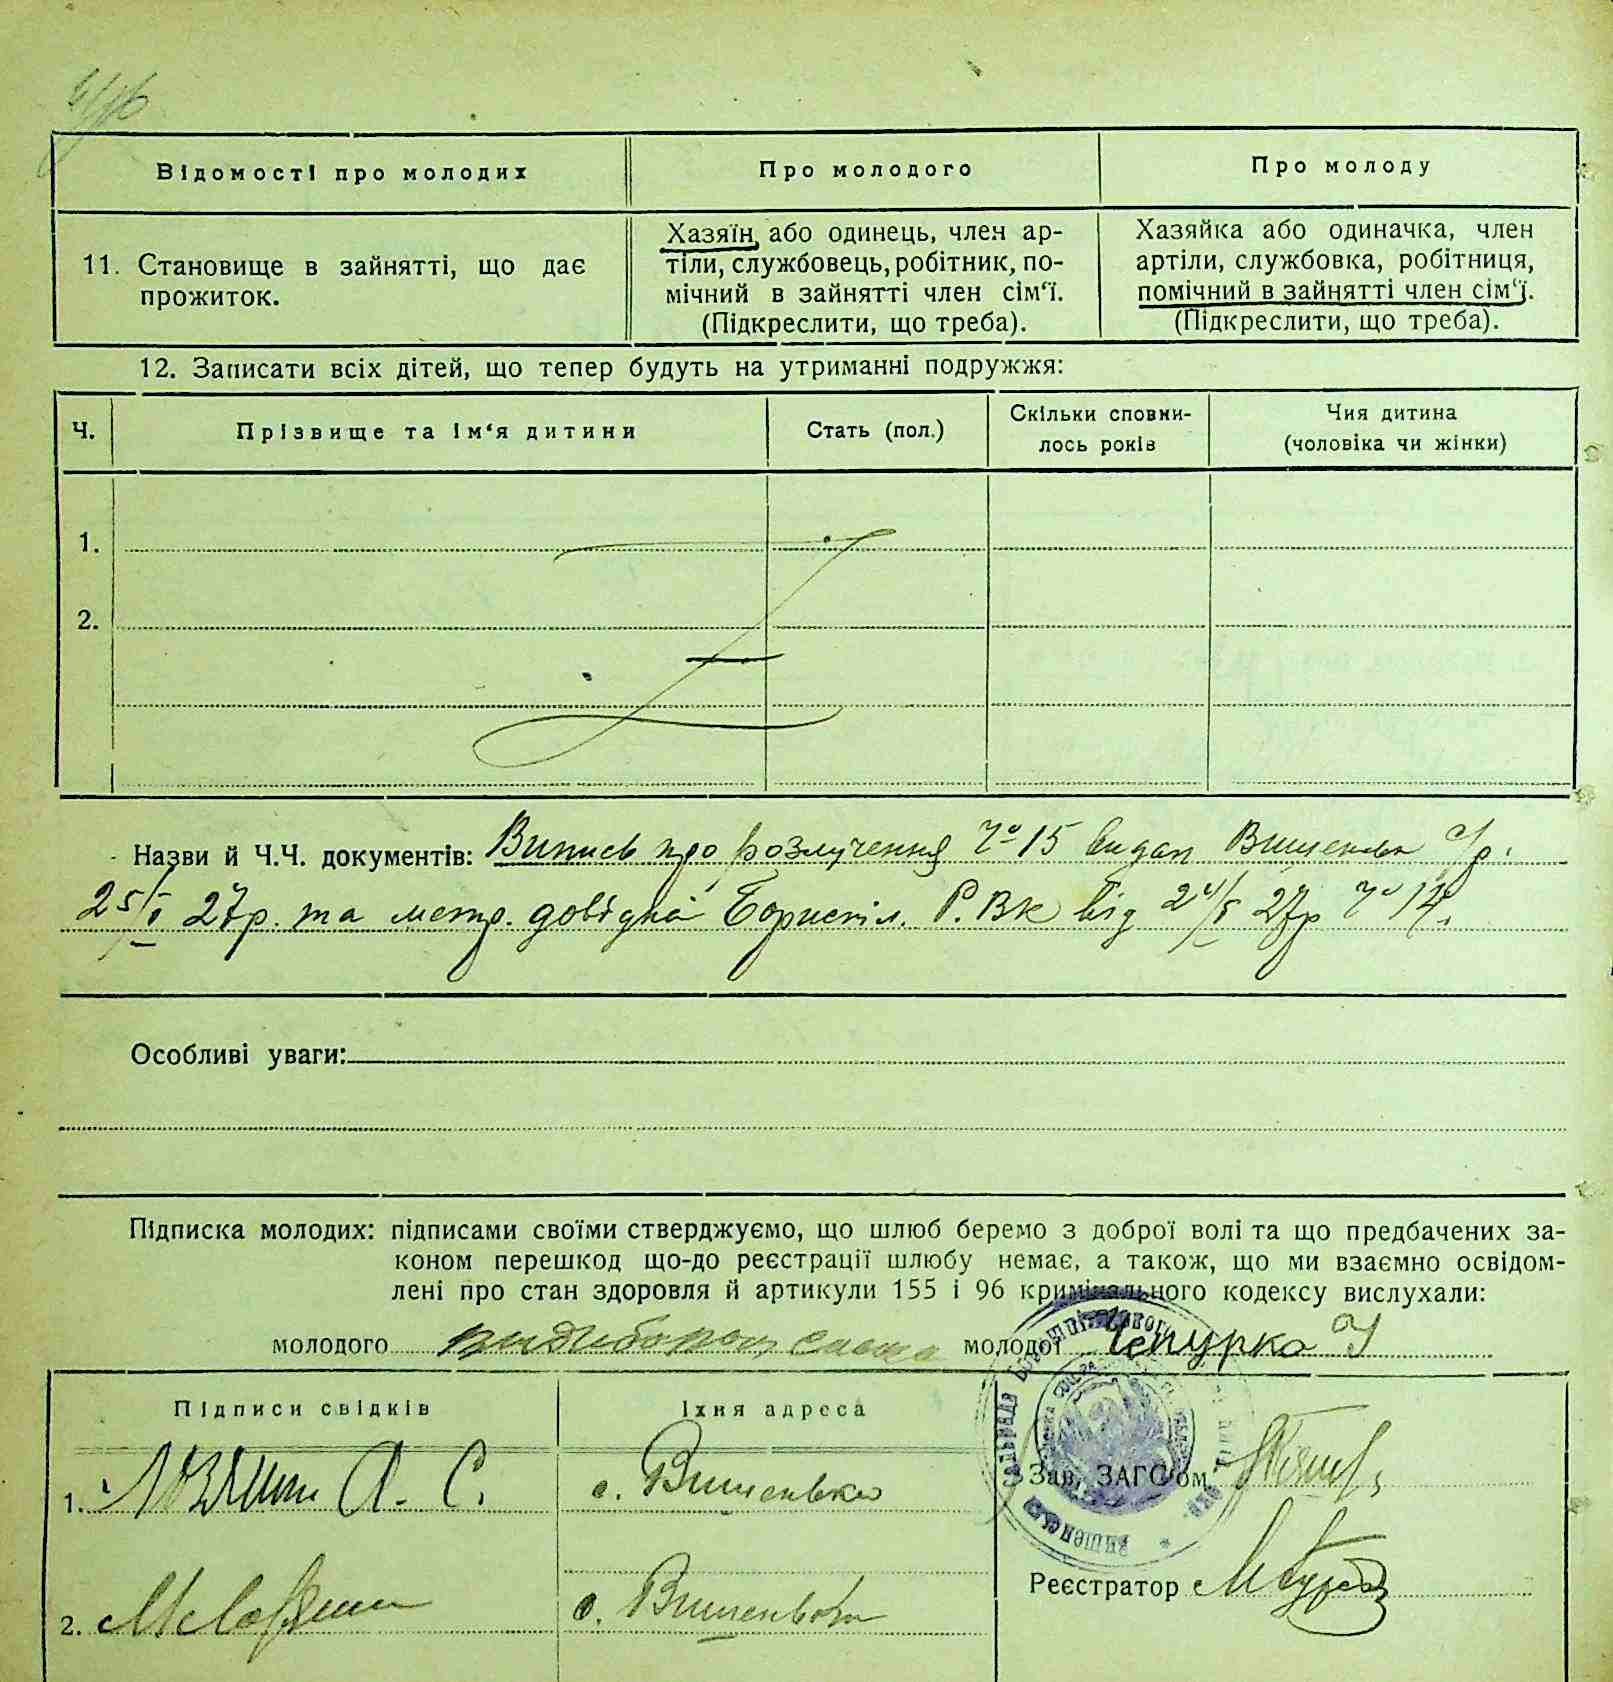 Відомості про молодих
Про молодого
Про молоду
11. Становище в зайнятті, що дає
прожиток.
Хазяїн, або одинець, член ар-
тіли, службовець, робітник, по-
мічний в зайнятті член сім‘ї.
(Підкреслити, що треба).
Хазяйка або одиначка, член
артіли, службовка, робітниця,
помічний в зайнятті член сім‘ї.
(Підкреслити, що треба).
12. Записати всіх дітей, що тепер будуть на утриманні подружжя:
Ч.
Прізвище та ім‘я дитини
Стать (пол.)
Скільки сповни-
лось років
Чия дитина
(чоловіка чи жінки)
1.
2.
Назви й Ч.Ч. документів: Випись про розлучення Ч° 15 видан Вишеньк с/р.
25/І 27р. та метр. довідка Бориспіл. Р.В.К від 24/І 27р Ч° 14.
Особливі уваги:
Підписка молодих: підписами своїми стверджуємо, що шлюб беремо з доброї волі та що предбачених за-
коном перешкод що-до реєстрації шлюбу немає, а також, що ми взаємно освідом-
лені про стан здоровля й артикули 155 і 96 кримінального кодексу вислухали:
молодого
молодої Чепурко
Підписи свідків
Їхня адреса
1. А. С.
с. Вишеньки
Зав. ЗАГС‘ом
2.
с. Вишеньки
Реєстратор